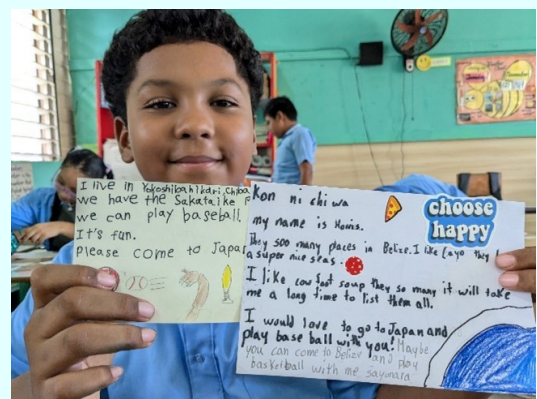 I live in Yokoshibahikari, Chiba
we have the Sakataike P
we can play baseball.
It's fun.
please come to Japan
Kon ni chi wa
my name is
They soo many places in Belize. I like Cayo they
a super nice seas.
I like cow foot soup they so many it will take
me a long time to list them all.
I would love to go to Japan and
play base ball with you! Maybe
you can come to Belize and play
basketball with me sayunara
choose
happy